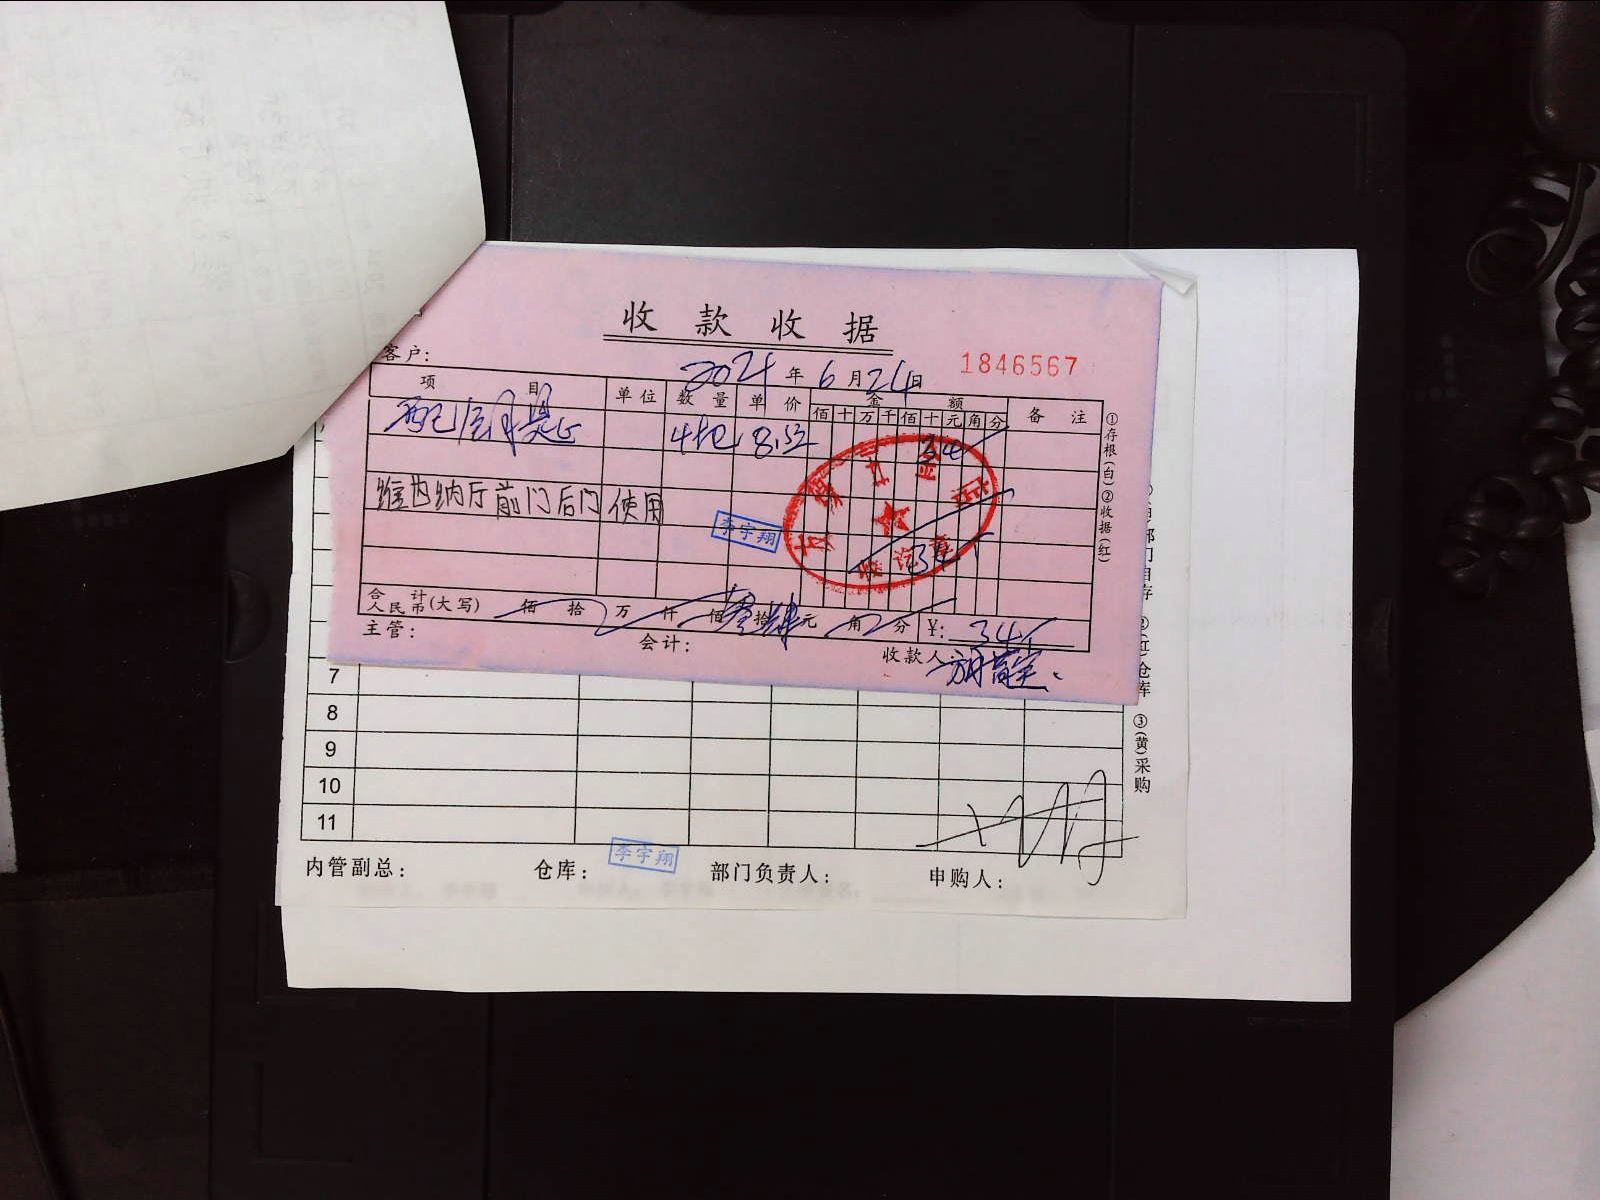 收款收据
客户:
2024年6月24日
1846567
项目 单位 数量 单价 金额 备注
佰十万千佰十元角分
4把 8.5 34
维也纳厅前门后门使用
李宇翔
34
合计
人民币(大写) 佰 拾 万 仟 佰 叁拾肆元 角 分 ¥: 34
主管: 会计: 收款人:
①存根(白)②收据(红)
7
8
9
10
11
②(红)仓库 ③(黄)采购
内管副总: 仓库: 李宇翔 部门负责人: 申购人: